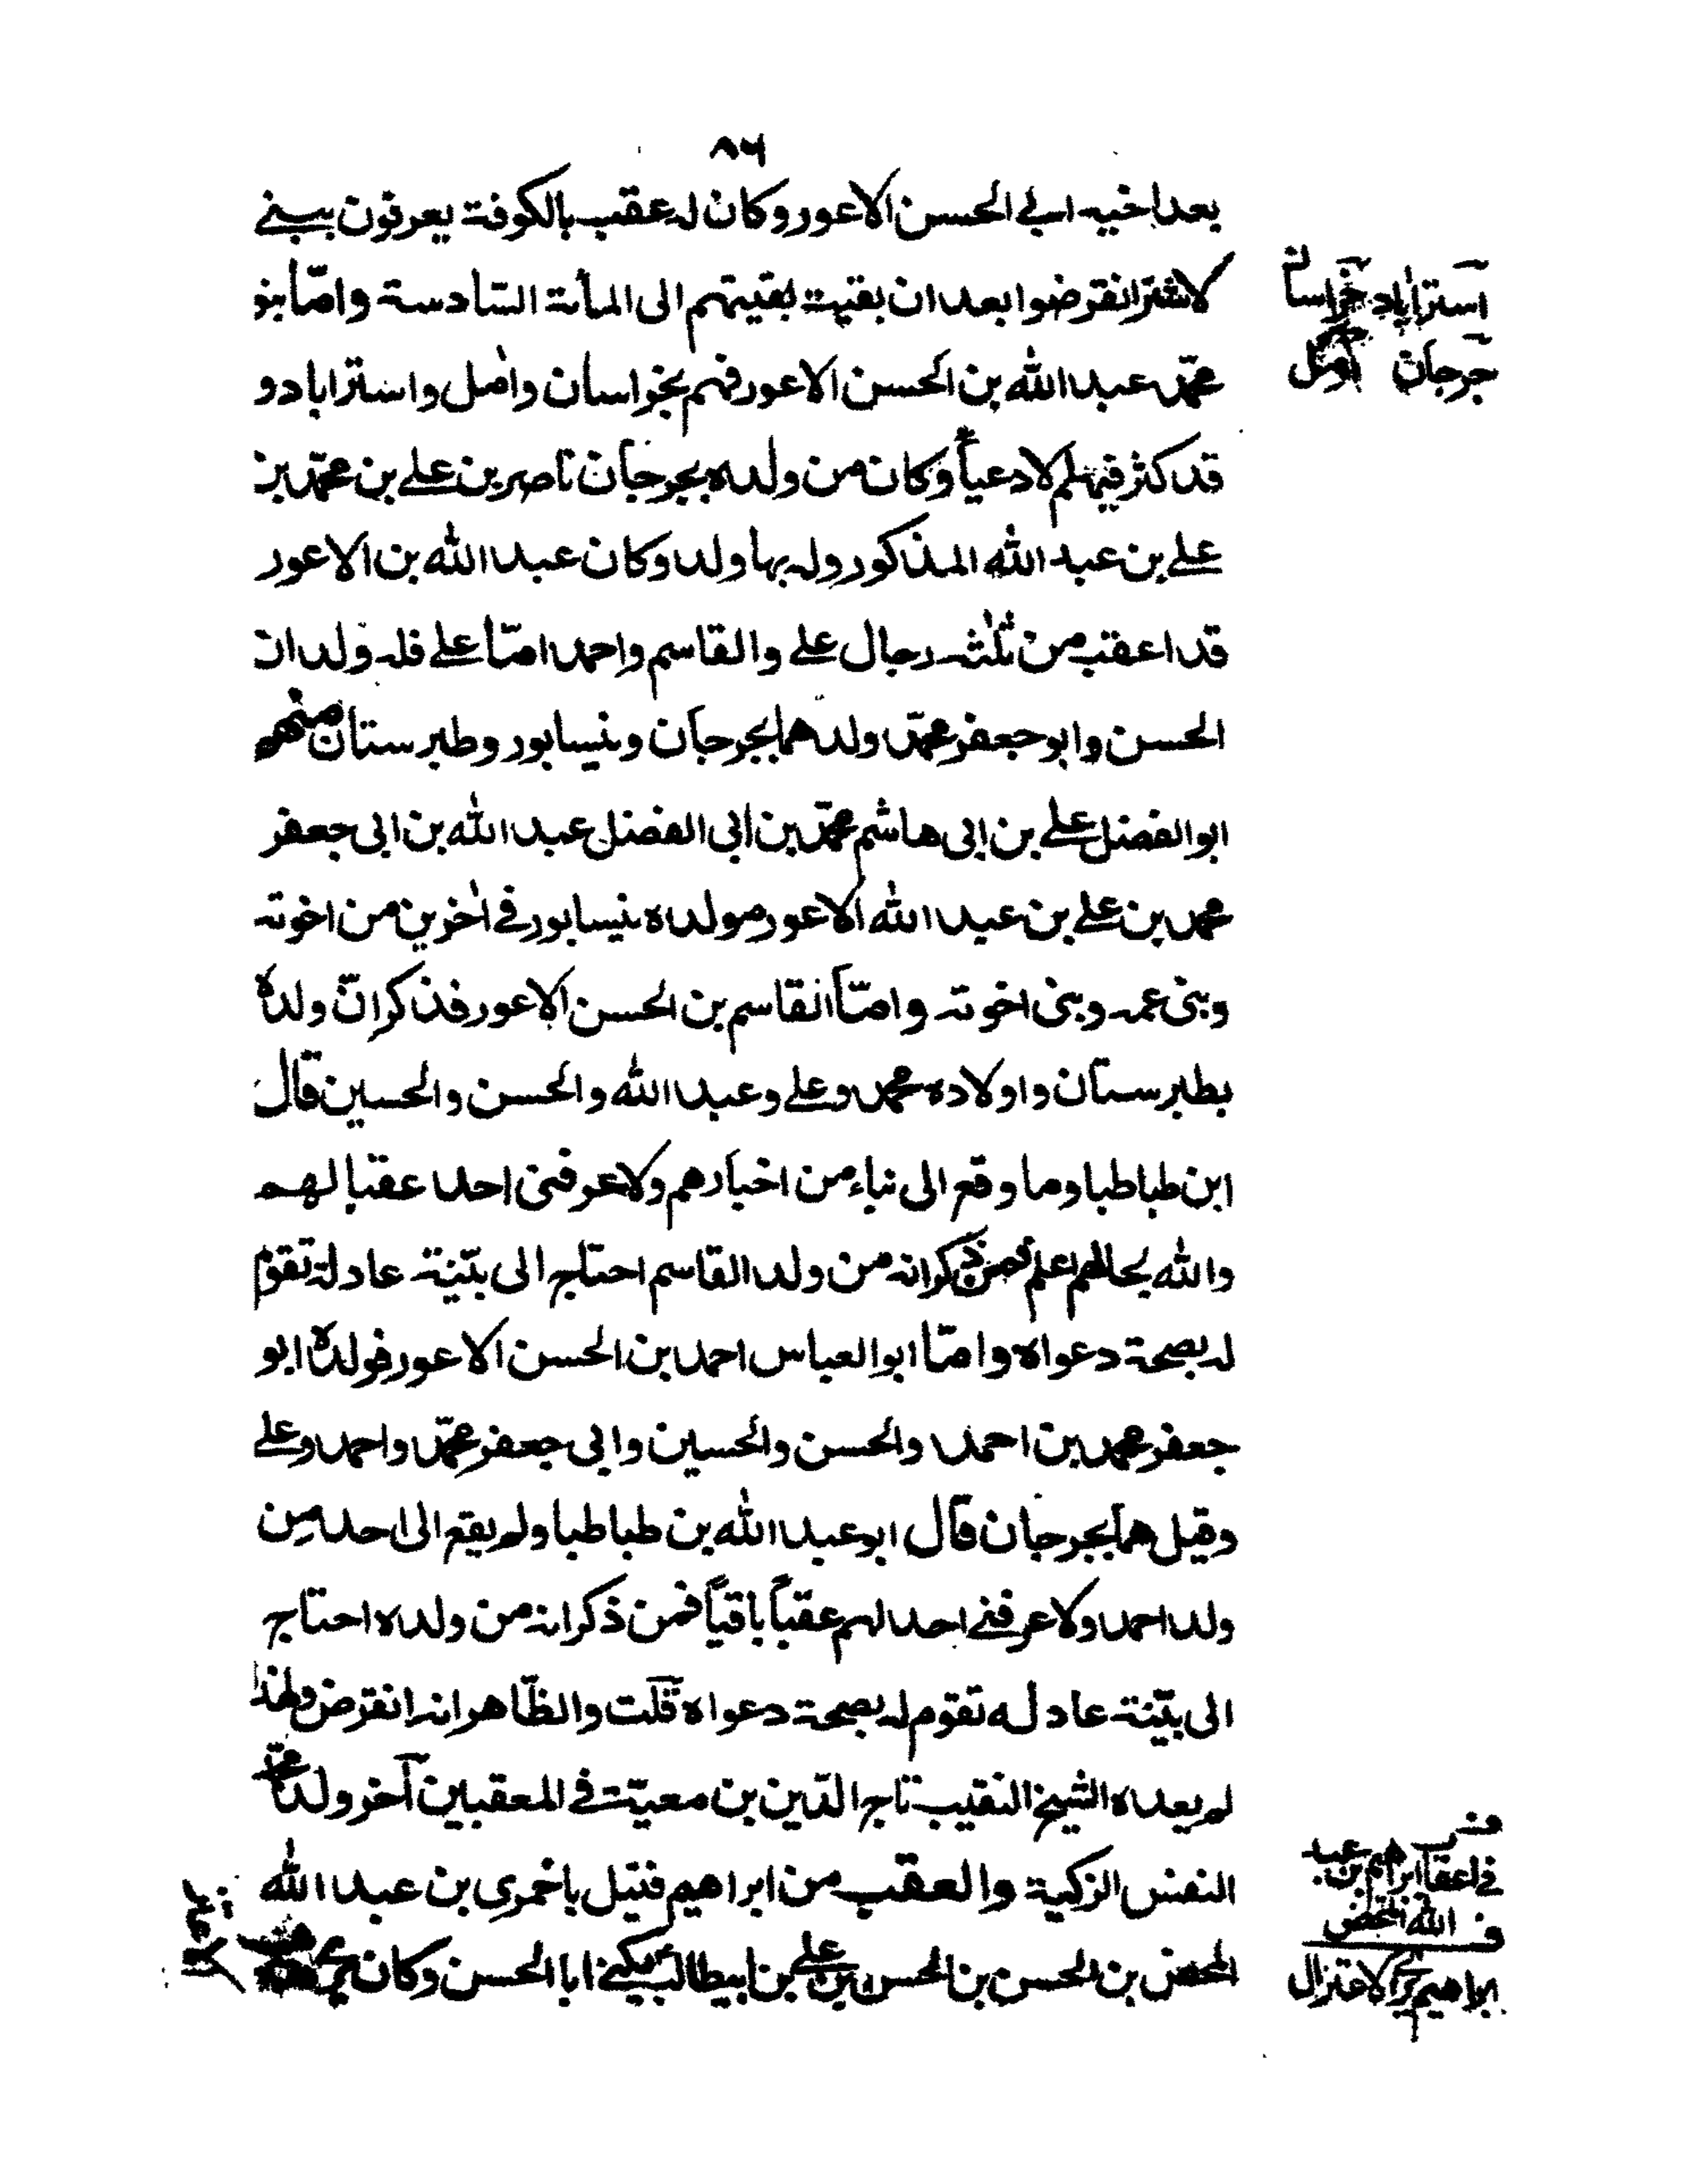 ٨٦
بعد اخيه ابى الحسن الاعور وكان له عقب بالكوفة يعرفون ببنى
الاشتر انقرضوا بعد ان بقيت بقيتهم الى المأة السّادسة وامّا بنو
محمّد عبد الله بن الحسن الاعور فهم بخراسان واٰمل واستراباد و
قد كثر فيهم الادعيأ وكان من ولده بجرجان ناصر بن على بن محمّد بن
على بن عبد الله المذكور وله بها ولد وكان عبد الله بن الاعور
قد اعقب من ثلٰثه رجال على والقاسم واحمد امّا على فله ولدان
الحسن وابو جعفر محمّد ولدهما بجرجان ونيسابور وطبرستان منهم
ابو الفضل على بن ابى هاشم محمّد بن ابى الفضل عبد الله بن ابى جعفر
محمد بن على بن عبد الله الاعور مولده بنيسابور فى اٰخرين من اخوته
وبنى عمه وبنى اخوته وامّا القاسم بن الحسن الاعور فذكر انّ ولدهٗ
بطبرستان واولاده محمد وعلى وعبد الله والحسن والحسين قال
ابن طباطبا وما وقع الى نباء من اخبارهم ولا عرفنى احد اعقبا لهم
والله بحالهم اعلم فمن ذكر انه من ولد القاسم احتاج الى بيّنة عادلة تقوم
له بصحة دعواه وامّا ابو العباس احمد بن الحسن الاعور فولدهٗ ابو
جعفر محمد بن احمد والحسن والحسين وابى جعفر محمّد واحمد وعلى
وقيل هما بجرجان قال ابو عبد الله بن طباطبا ولم يقع الى احد من
ولد احمد ولا عرفنى احد لهم عقباً باقياً فمن ذكر انه من ولده احتاج
الى بيّنة عادله تقوم له بصحة دعواه قلت والظّاهر انه انقرض ولهذا
لم يعده الشيخ النقيب تاج الدّين بن معيّة فى المعقبين آخر ولد محمّد
النفس الزكية والعقب من ابراهيم قتيل باخمرى بن عبد الله
المحض بن الحسن بن الحسن بن على بن ابيطالب يكنى ابا الحسن وكان
آستراباد خراسان
جرجان آمل
ف
فى اعقاب ابراهيم بن عبد
الله المحض
ف
ابراهيم الاعتزال